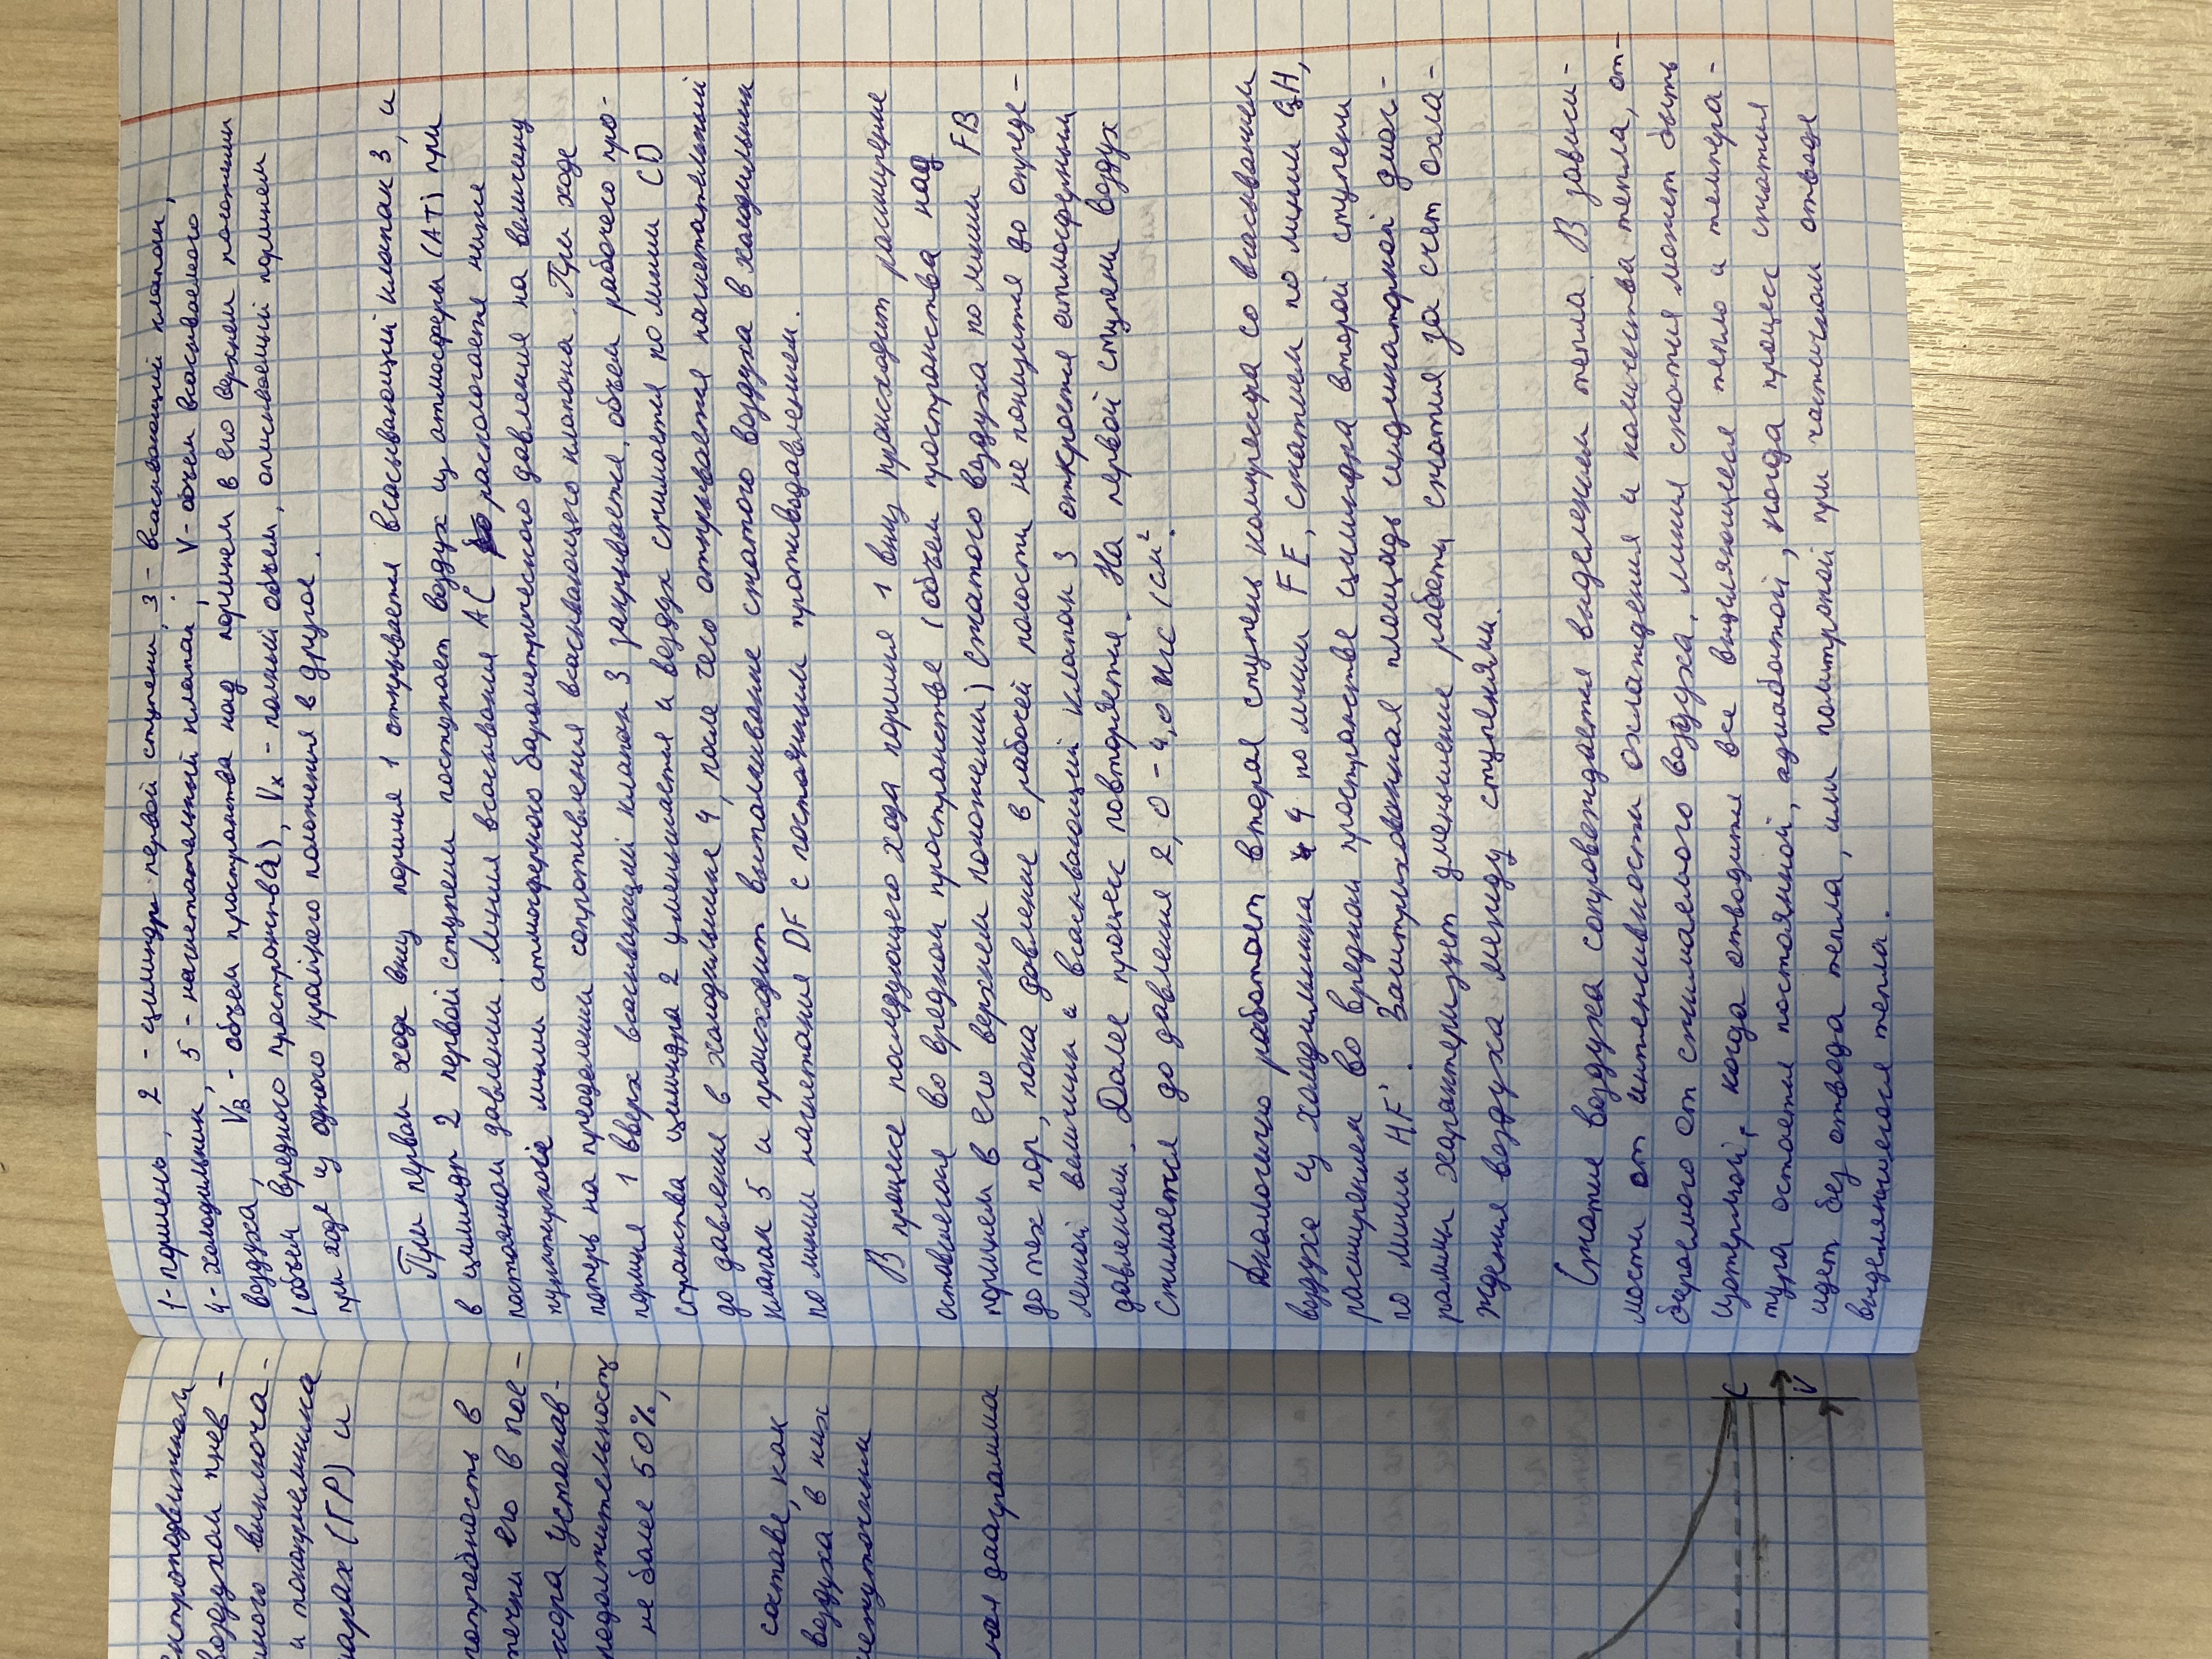 нтроподвижном
воздухом пнев-
много выключа-
и токоприемника
марах (ГР) и
потребность в
течки его в пое-
ссора установ-
продолжительность
не более 50%,
составе, как
воздуха в них
ная диаграмма
C
V
1- поршень, 2 - цилиндр первой ступени, 3 - всасывающий клапан,
4- холодильник, 5 - нагнетательный клапан; V - объем всасываемого
воздуха, Vв - объем пространства над поршнем в его верхнем положении
(объем вредного пространства), Vх - полный объем, описываемый поршнем
при ходе из одного крайнего положения в другое.
При первом ходе вниз поршня 1 открывается всасывающий клапан 3, и
в цилиндр 2 первой ступени поступает воздух из атмосферы (АТ) при
постоянном давлении. Линия всасывания AC располагается ниже
пунктирной линии атмосферного барометрического давления на величину
потерь на преодоление сопротивления всасывающего клапана. При ходе
поршня 1 вверх всасывающий клапан 3 закрывается, объем рабочего про-
странства цилиндра 2 уменьшается и воздух сжимается по линии CD
до давления в холодильнике 4, после чего открывается нагнетательный
клапан 5 и происходит выталкивание сжатого воздуха в холодильник
по линии нагнетания DF с постоянным противодавлением.
В процессе последующего хода поршня 1 вниз происходит расширение
оставшегося во вредном пространстве (объем пространства над
поршнем в его верхнем положении) сжатого воздуха по линии FB
до тех пор, пока давление в рабочей полости не понизится до опреде-
ленной величины и всасывающий клапан 3 откроется атмосферным
давлением. Далее процесс повторяется. На первой ступени воздух
сжимается до давления 2,0 - 4,0 кгс/см².
Аналогично работает вторая ступень компрессора со всасыванием
воздуха из холодильника 4 по линии FE, сжатием по линии GH,
расширением во вредном пространстве цилиндра второй ступени
по линии HF'. Заштрихованная площадь индикаторной диаг-
раммы характеризует уменьшение работы сжатия за счет охла-
ждения воздуха между ступенями.
Сжатие воздуха сопровождается выделением тепла. В зависи-
мости от интенсивности охлаждения и количества тепла, от-
бираемого от сжимаемого воздуха, линия сжатия может быть
изотермой, когда отводится все выделяющееся тепло и темпера-
тура остается постоянной, адиабатой, когда процесс сжатия
идет без отвода тепла, или политропой при частичном отводе
выделяющегося тепла.